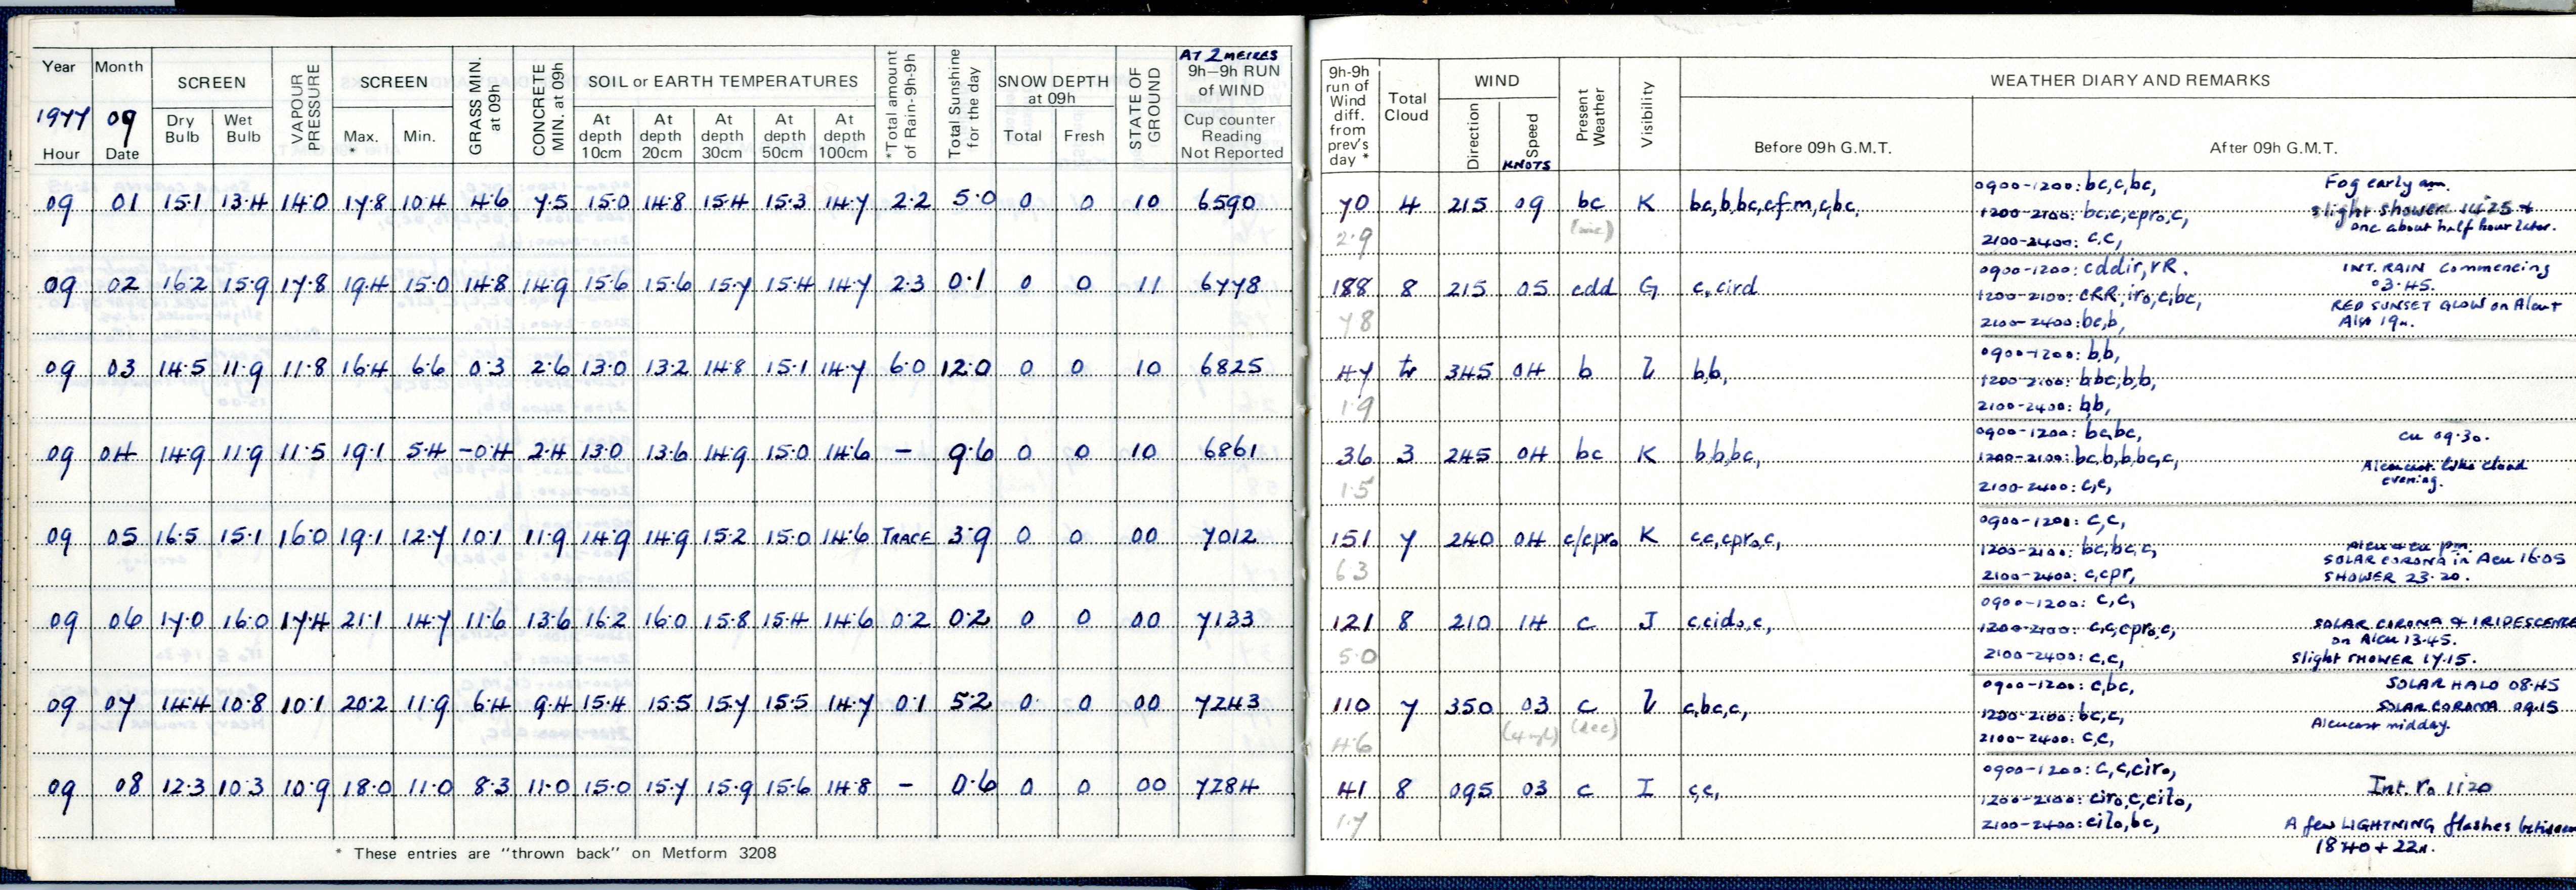 Year Month SCREEN VAPOUR PRESSURE SCREEN GRASS MIN. at 09h CONCRETE MIN. at 09h SOIL or EARTH TEMPERATURES *Total amount of Rain-9h-9h Total Sunshine for the day SNOW DEPTH at 09h STATE OF GROUND AT 2 METRES 9h-9h RUN of WIND
1977 09 Dry Bulb Wet Bulb Max. * Min. At depth 10cm At depth 20cm At depth 30cm At depth 50cm At depth 100cm Total Fresh Cup counter Reading Not Reported
Hour Date
09 01 15.1 13.4 14.0 17.8 10.4 4.6 7.5 15.0 14.8 15.4 15.3 14.7 2.2 5.0 0 0 10 6590
09 02 16.2 15.9 17.8 19.4 15.0 14.8 14.9 15.6 15.6 15.7 15.4 14.7 2.3 0.1 0 0 11 6778
09 03 14.5 11.9 11.8 16.4 6.6 0.3 2.6 13.0 13.2 14.8 15.1 14.7 6.0 12.0 0 0 10 6825
09 04 14.9 11.9 11.5 19.1 5.4 -0.4 2.4 13.0 13.6 14.9 15.0 14.6 - 9.6 0 0 10 6861
09 05 16.5 15.1 16.0 19.1 12.7 10.1 11.9 14.9 14.9 15.2 15.0 14.6 TRACE 3.9 0 0 00 7012
09 06 17.0 16.0 17.4 21.1 14.7 11.6 13.6 16.2 16.0 15.8 15.4 14.6 0.2 0.2 0 0 00 7133
09 07 14.4 10.8 10.1 20.2 11.9 6.4 9.4 15.4 15.5 15.7 15.5 14.7 0.1 5.2 0 0 00 7243
09 08 12.3 10.3 10.9 18.0 11.0 8.3 11.0 15.0 15.7 15.9 15.6 14.8 - 0.6 0 0 00 7284
* These entries are "thrown back" on Metform 3208
9h-9h run of Wind diff. from prev's day * Total Cloud WIND Present Weather Visibility WEATHER DIARY AND REMARKS
Direction Speed KNOTS Before 09h G.M.T. After 09h G.M.T.
0900-1200: bc,c,bc, Fog early am.
70 4 215 09 bc K bc,b,bc,cfm,c,bc, 1200-2100: bc,c,cpro,c, slight shower 14.25 +
2.9 2100-2400: c,c, one about half hour later.
0900-1200: cddir,rR. INT. RAIN commencing
188 8 215 05 cdd G c,cird 1200-2100: cRR,iro,c,bc, 03.45.
RED SUNSET GLOW on Alcu+
7.8 2100-2400: bc,b,
0900-1200: b,b,
47 tr 345 04 b b,b, 1200-2100: b,bc,b,b,
1.9 2100-2400: b,b,
0900-1200: bc,bc, cu 09.30.
36 3 245 04 bc K b,b,bc, 1200-2100: bc,b,b,bc,c, like cloud
1.5 2100-2400: c,c, evening.
0900-1200: c,c,
151 7 240 04 c/cpro K c,c,cpro,c, 1200-2100: bc,bc,c, pm.
SOLAR CORONA in Acu 16.05
6.3 2100-2400: c,cpr, SHOWER 23.20.
0900-1200: c,c,
121 8 210 14 c J c,cido,c, 1200-2100: c,c,cpro,c, SOLAR CORONA & IRIDESCENCE
on Alcu 13.45.
5.0 2100-2400: c,c, slight SHOWER 17.15.
0900-1200: c,bc, SOLAR HALO 08.45
110 7 350 03 c c,bc,c, 1200-2100: bc,c, SOLAR CORONA 09.15
Alcucast midday.
4.6 (dec) 2100-2400: c,c,
0900-1200: c,c,ciro,
41 8 095 03 c I c,c, 1200-2100: ciro,c,cilo, Int. ro 1120
1.7 2100-2400: cilo,bc, A few LIGHTNING flashes between
1840 + 22h.